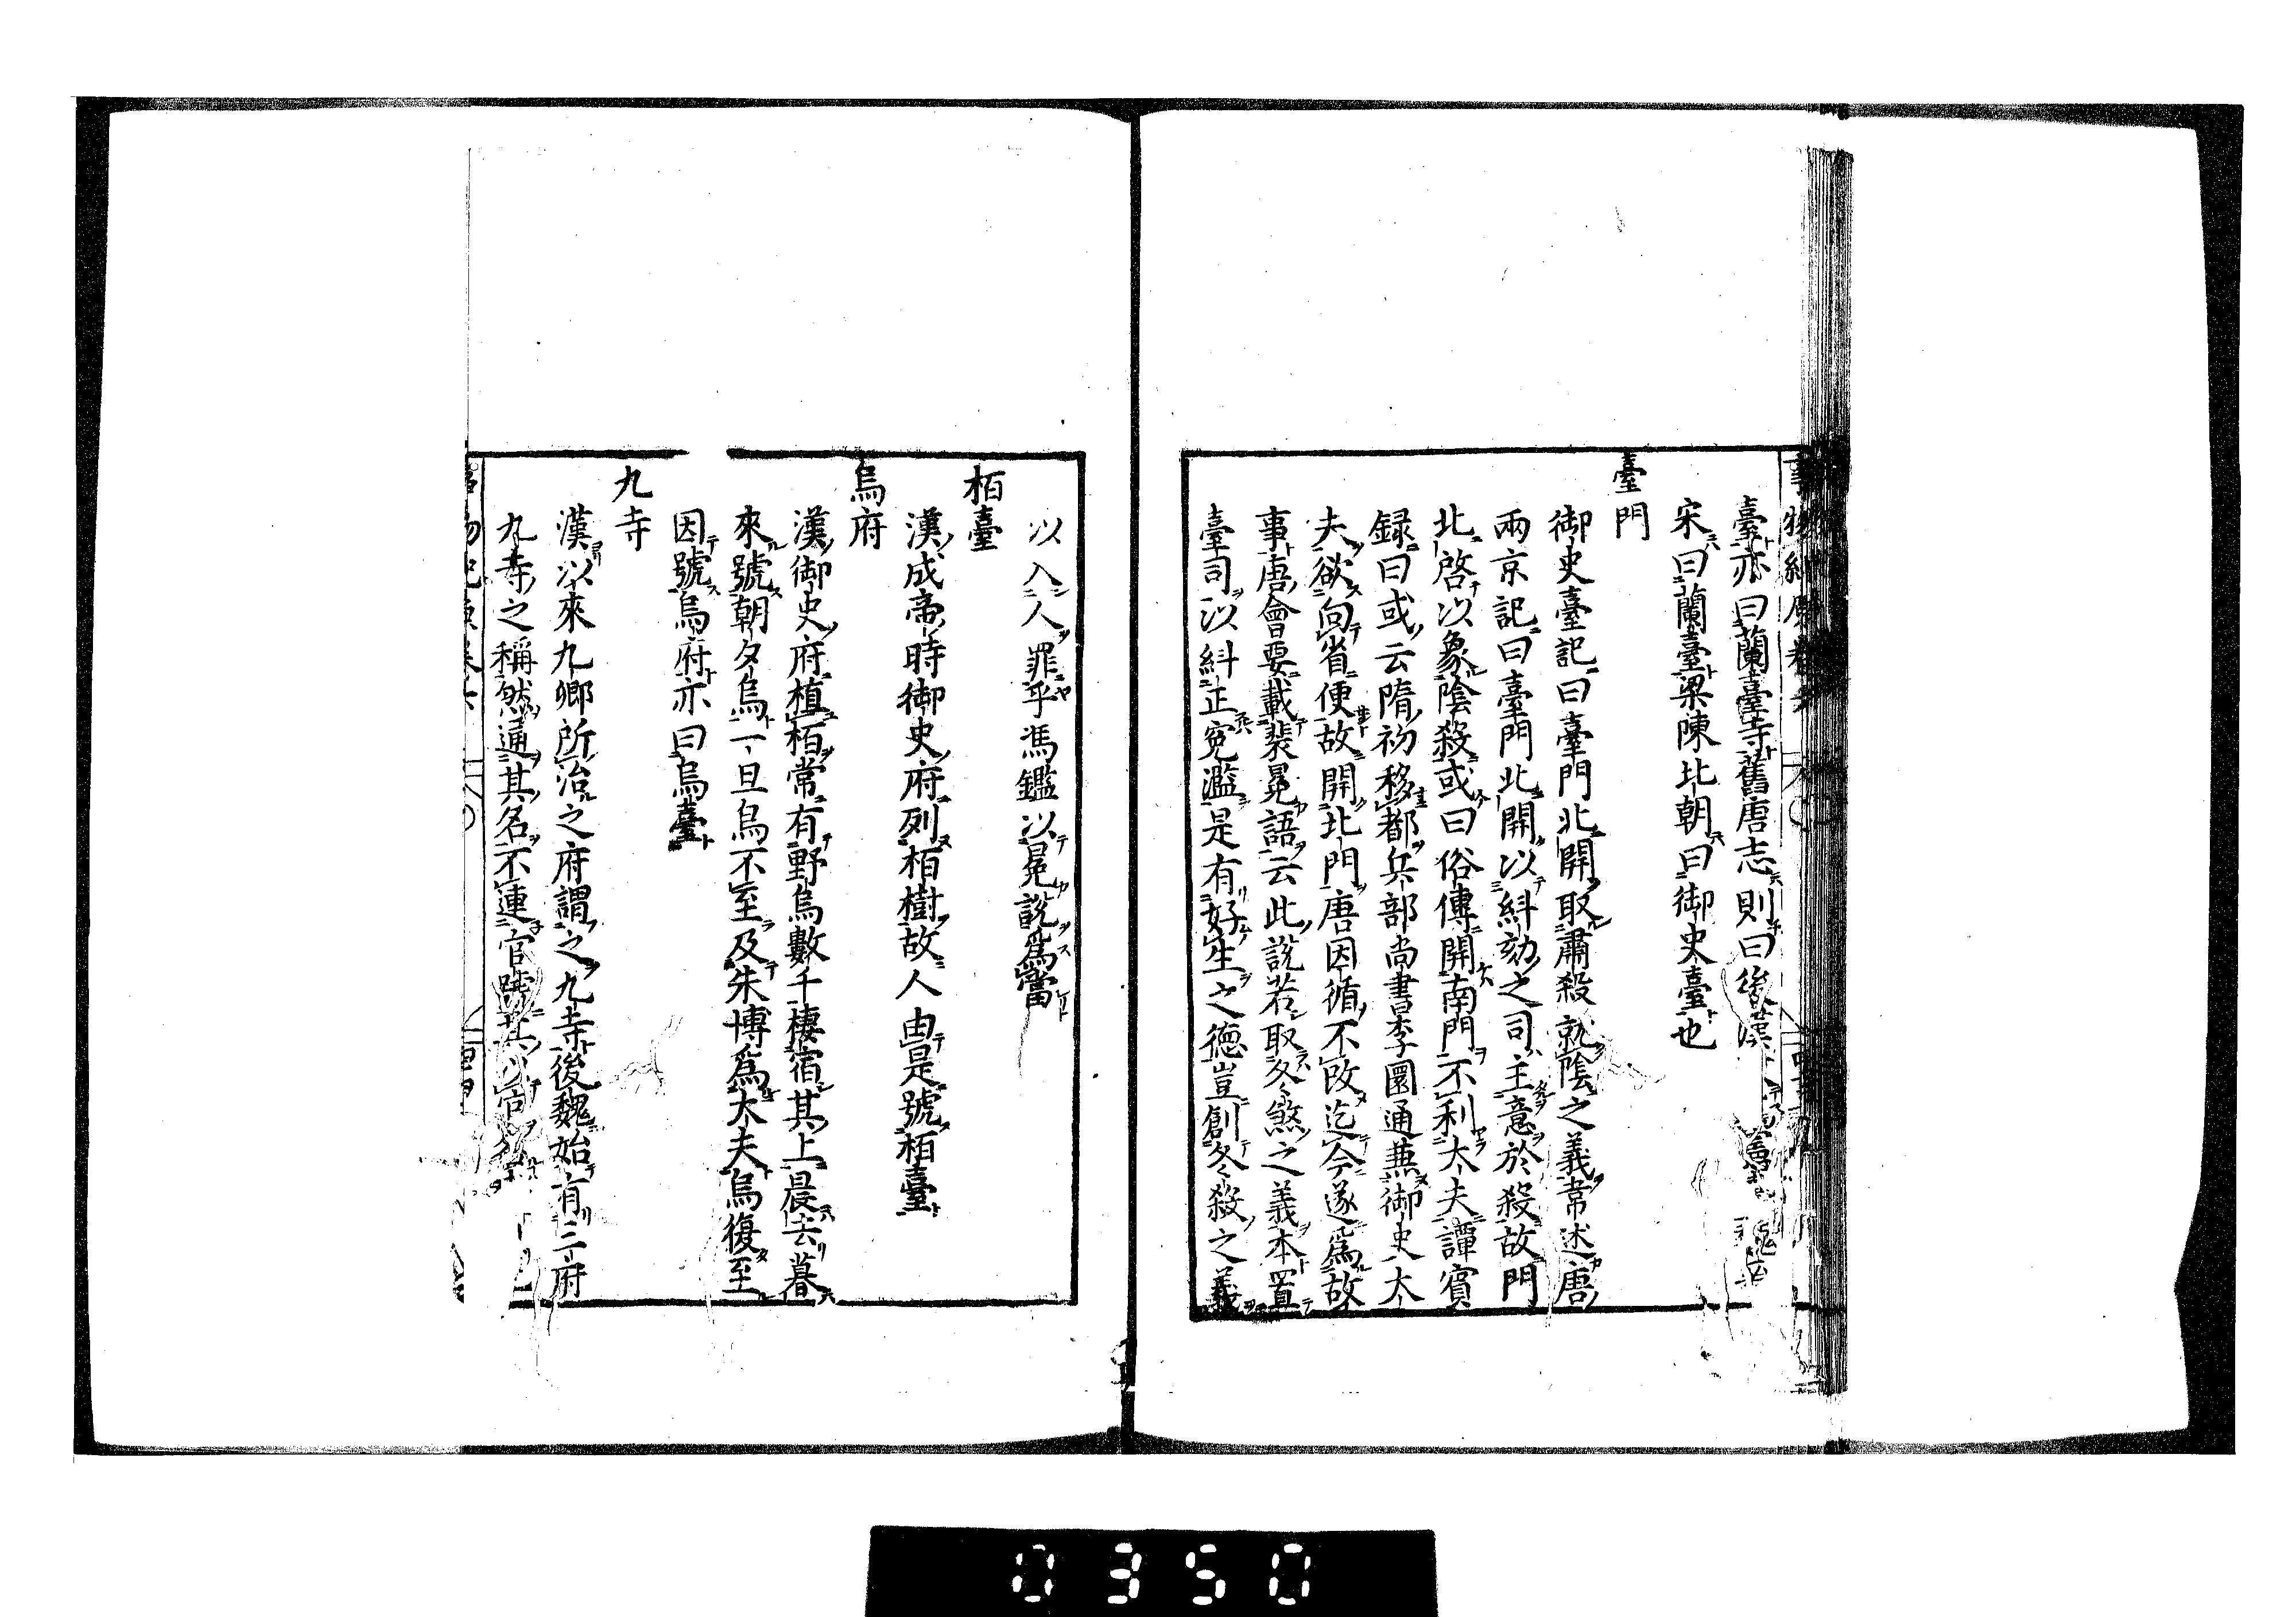 臺亦曰蘭臺寺舊唐志則曰後漢
宋曰蘭臺梁陳北朝曰御史臺也
臺門
御史臺記曰臺門北開取肅殺就陰之義韋述唐
兩京記曰臺門北開以糾劾之司主意於殺故門
北啓以象陰殺或曰俗傳開南門不利大夫譚賓
録曰或云隋初移都兵部尚書李圓通兼御史大
夫欲向省便故開北門唐因循不改迄今遂爲故
事唐會要載裴冕語云此説若取冬煞之義本置
臺司以糾正寃濫是有好生之德豈創冬殺之義
以入人罪乎馮鑑以冕説爲當
栢臺
漢成帝時御史府列栢樹故人由是號栢臺
烏府
漢御史府植栢常有野烏數千棲宿其上晨去暮
來號朝夕烏一旦烏不至及朱博爲大夫烏復至
因號烏府亦曰烏臺
九寺
漢以來九卿所治之府謂之九寺後魏始有三府
九寺之稱然通其名不連官號其以官
0350